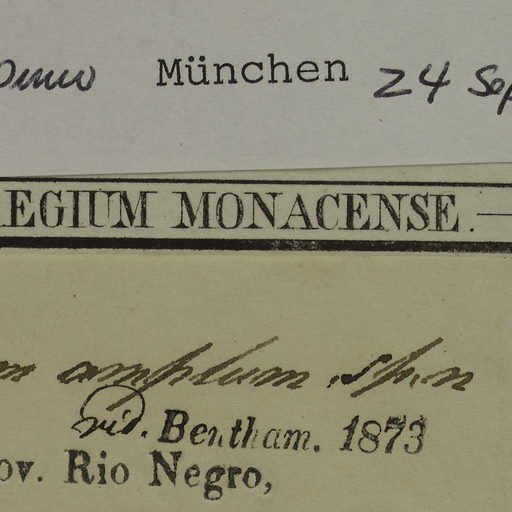 München 24 Sep
EGIUM MONACENSE.
amplum sp. n
vid. Bentham. 1873
ov. Rio Negro,